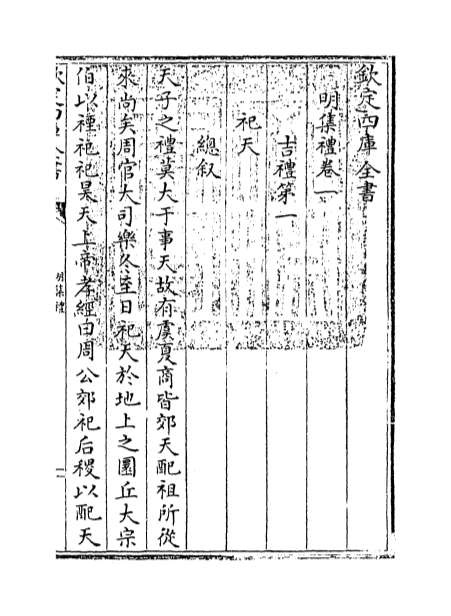 欽定四庫全書
明集禮卷一
吉禮第一
祀天
總叙
天子之禮莫大于事天故有虞夏商皆郊天配祖所從
來尚矣周官大司樂冬至日祀天於地上之圜丘大宗
伯以禋祀祀昊天上帝孝經曰周公郊祀后稷以配天
欽定四庫全書
明集禮
一